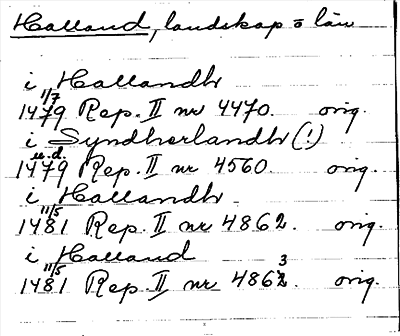 Halland, landskap o län
i Hallandh
1479 11/7 Rep. II nr 4470. orig.
i Syndherlandh (!)
1479 u.d. Rep. II nr 4560. orig.
i Hallandh
1481 11/5 Rep. II nr 4862. orig.
i Halland
1481 11/5 Rep. II nr 4863. orig.